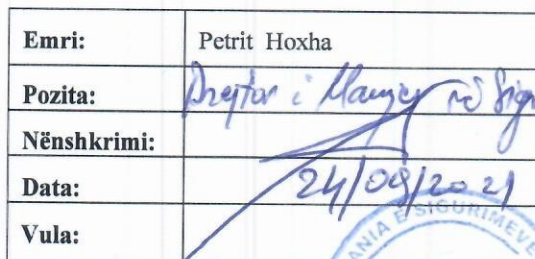 Emri: Petrit Hoxha
Pozita: Drejtor i në Sig
Nënshkrimi:
Data: 24/09/2021
Vula:
ANIA E SIGURIMEVE